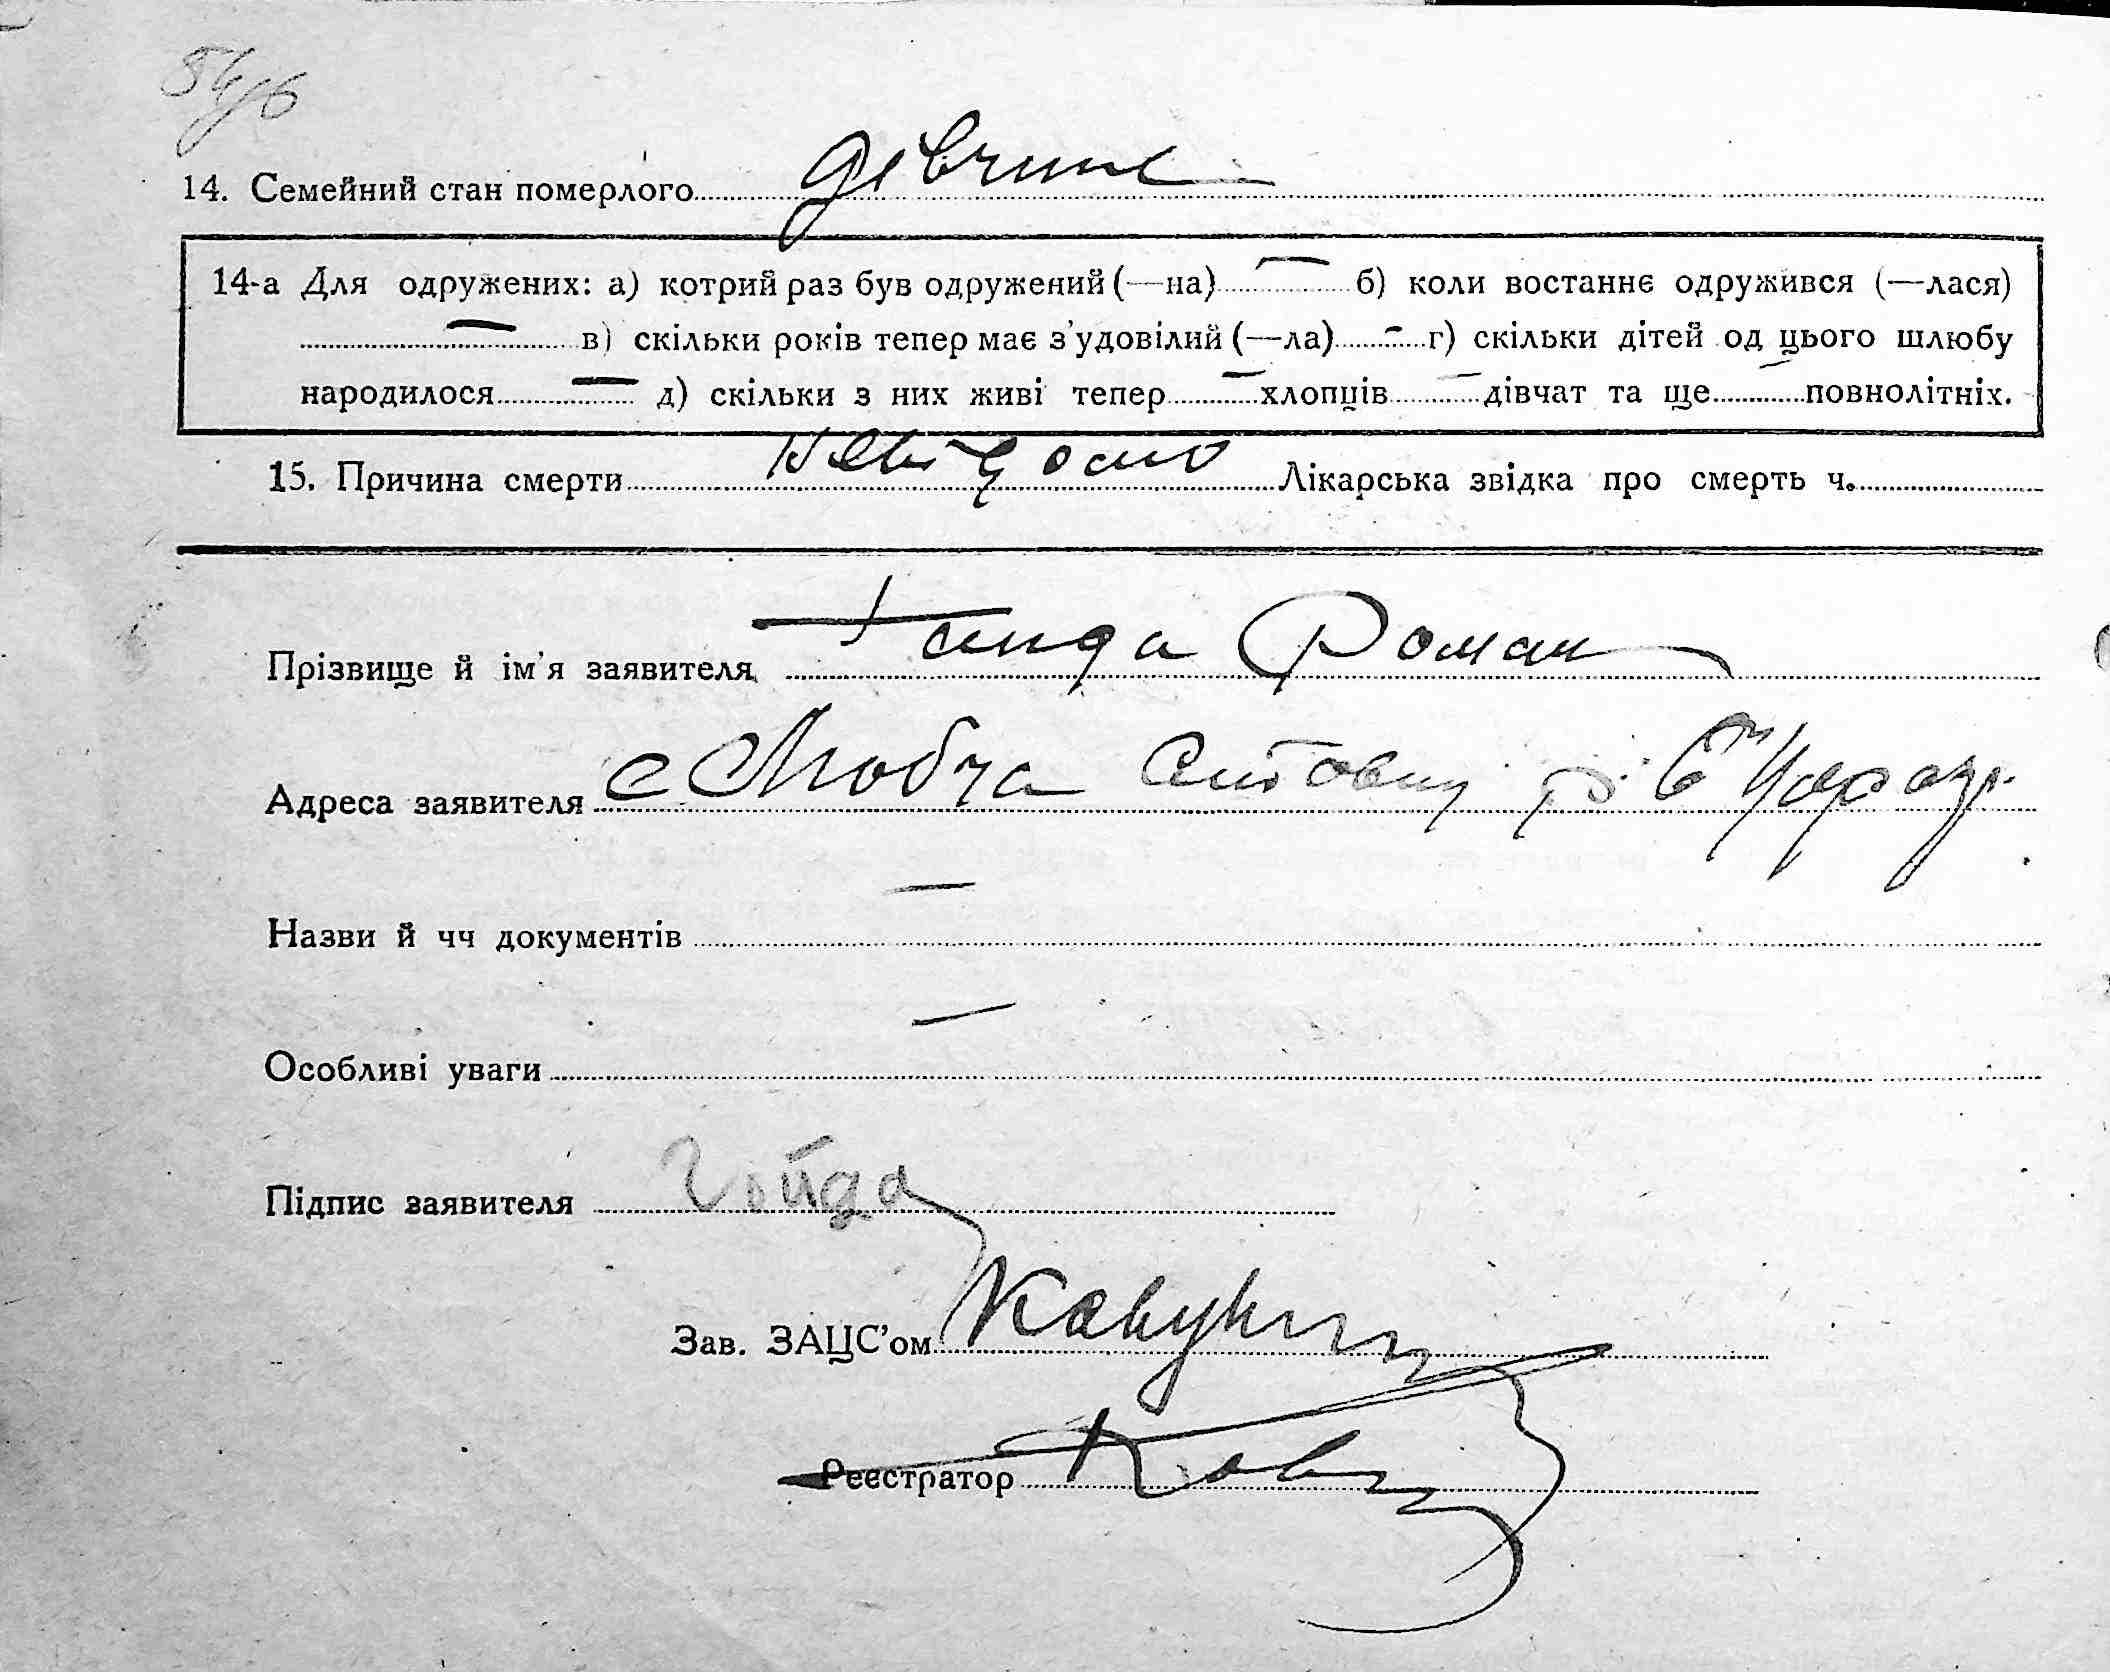 54/6
14. Семейний стан померлого дівчина
14-а Для одружених: а) котрий раз був одружений (—на) — б) коли востаннє одружився (—лася)
— в) скільки років тепер має з'удовілий (—ла) — г) скільки дітей од цього шлюбу
народилося — д) скільки з них живі тепер — хлопців — дівчат та ще — повнолітніх.
15. Причина смерти невідомо Лікарська звідка про смерть ч.
Прізвище й ім'я заявителя Гайда Роман
Адреса заявителя с Любча
Назви й чч документів —
Особливі уваги —
Підпис заявителя Гойда
Зав. ЗАЦС'ом
Реєстратор